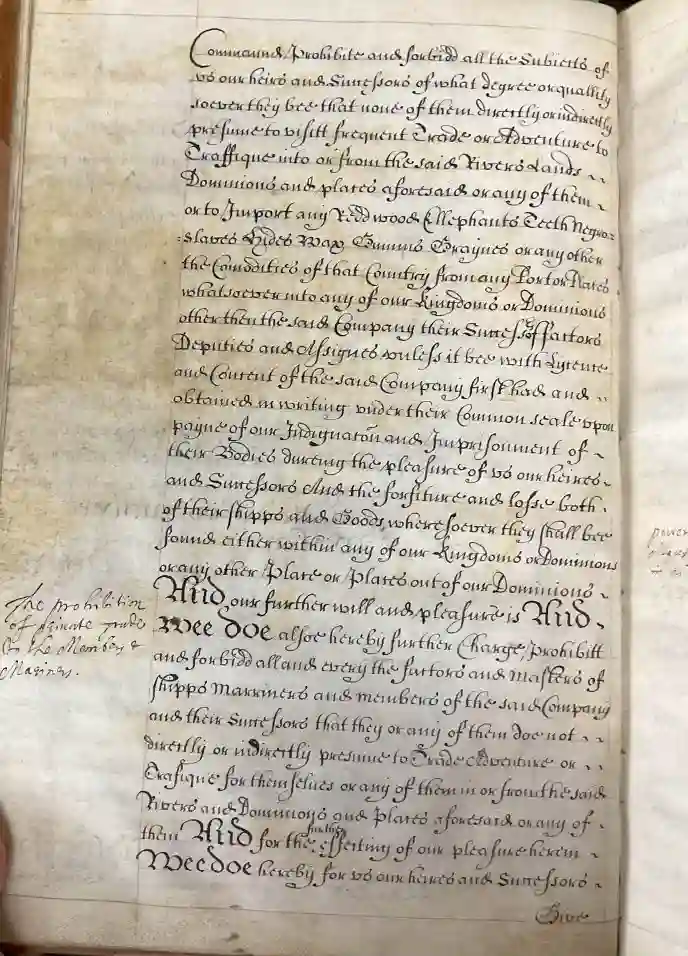 Command Prohibite and forbidd all the Subiects of
vs our heires and Successors of what degree or quallity
soever they bee that none of them directly or indirectly
presume to visitt frequent Trade or Adventure to
Traffique into or from the said Rivers Lands
Dominions and places aforesaid or any of them
or to Import any Redd wood Ellephants Teeth Negro:
:slaves Hides Wax Gumms Graynes or any other
the Comodities of that Country from any Port or Places
whatsoever into any of our Kingdoms or Dominions
other then the said Company their Success.rs ffactors
Deputies and Assignes vnless it bee with Lycence
and Consent of the said Company first had and
obtained in writing vnder their Common seale vpon
payne of our Indignaton and Imprisonment of
their Bodies dureing the pleasure of vs our heires
and Successors And the forfiture and losse both
of their shipps and Goods wheresoever they shall bee
found either within any of our Kingdoms or Dominions
or any other Place or Places out of our Dominions
And our further will and pleasure is And
Wee doe alsoe hereby further Charge, prohibitt
and forbidd all and every the factors and Masters of
shipps Marriners and members of the said Company
and their Successors that they or any of them doe not
directly or indirectly presume to Trade Adventure or
Trafique for themselves or any of them in or from the said
Rivers and Dominions and Places aforesaid or any of
them And for the further effecting of our pleasure herein
Wee doe hereby for vs our heires and Successors
Give
The prohibition
of private trade
to the Members &
Mariners.
power